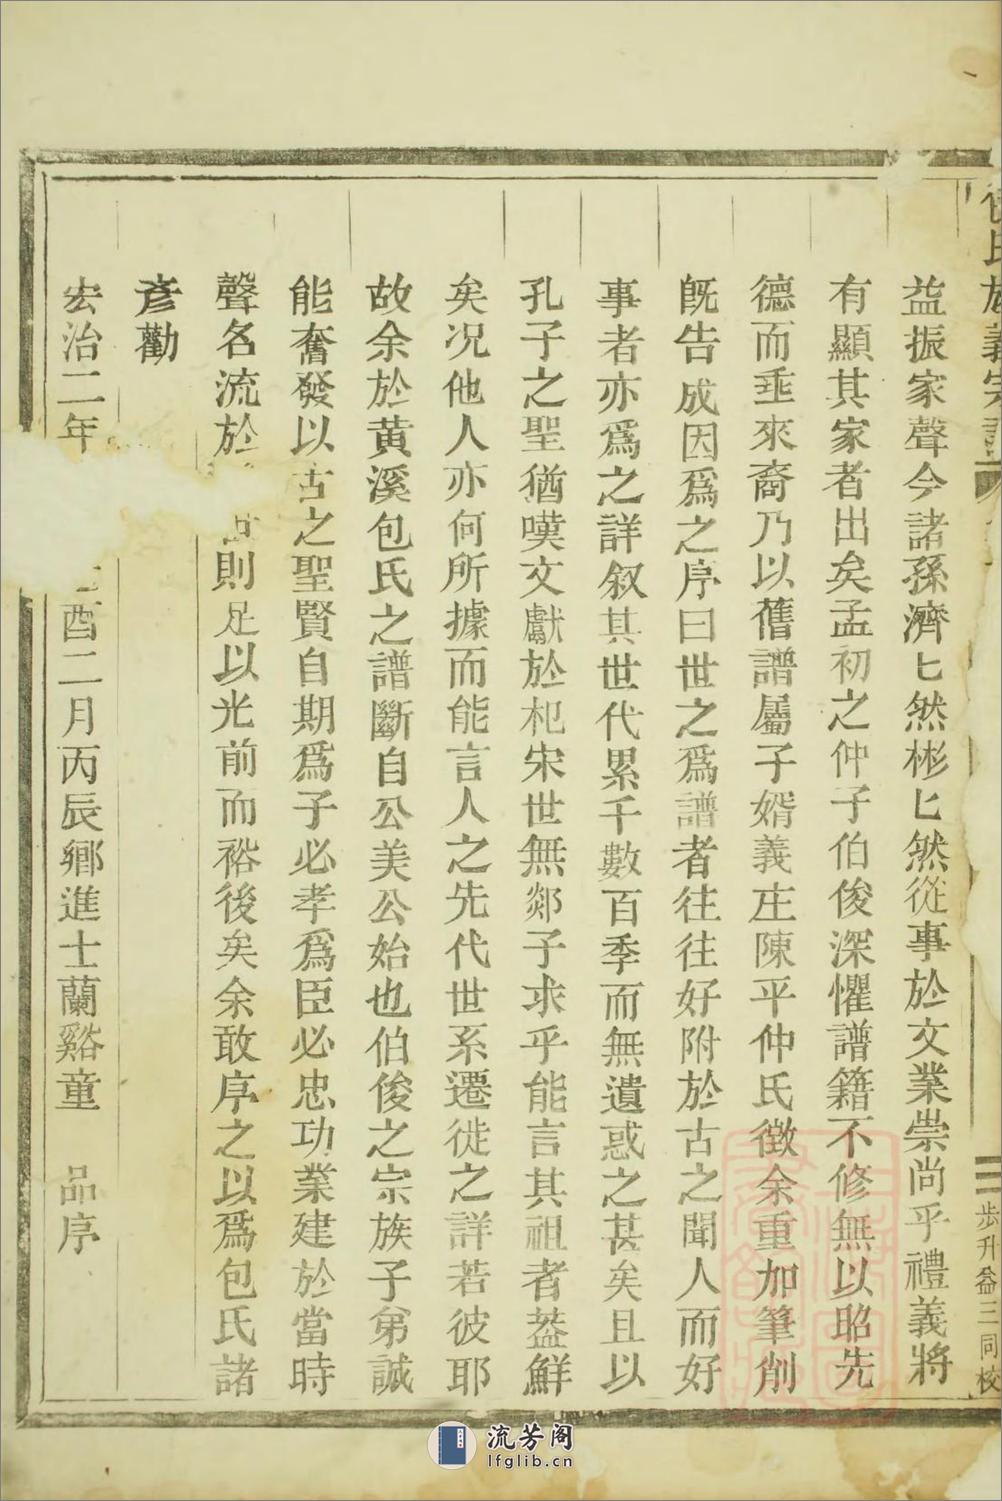 氏族義宗譜
歩升益三同校
益振家聲今諸孫濟匕然彬匕然從事於文業崇尚乎禮義將
有顯其家者出矣孟初之仲子伯俊深懼譜籍不修無以昭先
德而垂來裔乃以舊譜屬子婿義庄陳平仲氏徵余重加筆削
旣告成因爲之序曰世之爲譜者往往好附於古之聞人而好
事者亦爲之詳叙其世代累千數百季而無遺惑之甚矣且以
孔子之聖猶嘆文獻於杞宋世無郯子求乎能言其祖者葢鮮
矣况他人亦何所據而能言人之先代世系遷徙之詳若彼耶
故余於黄溪包氏之譜斷自公美公始也伯俊之宗族子弟誠
能奮發以古之聖賢自期爲子必孝爲臣必忠功業建於當時
聲名流於則足以光前而裕後矣余敢序之以爲包氏諸
彥勸
宏治二年酉二月丙辰鄉進士蘭谿童 品序
流芳阁
lfglib.cn